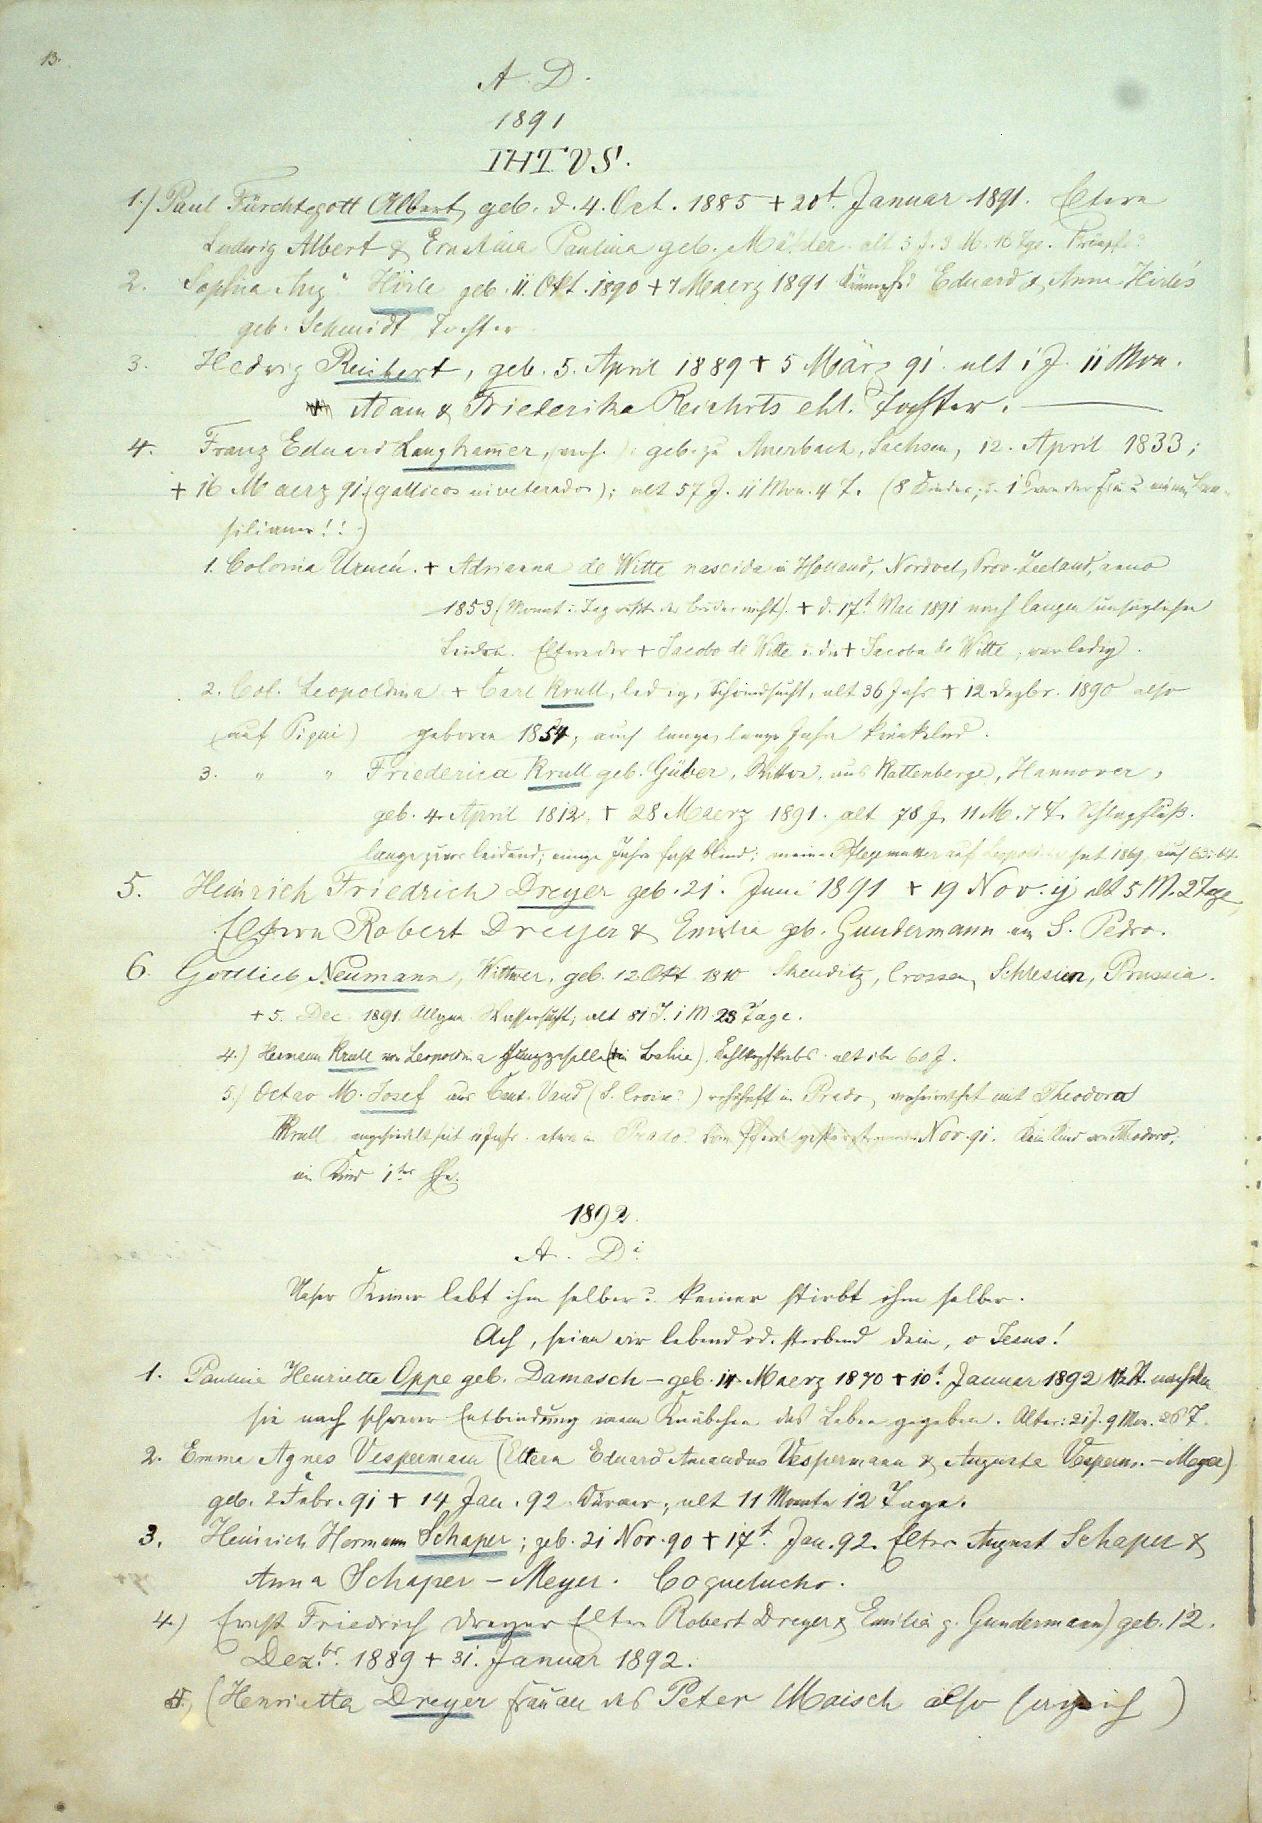 13.
A. D.
1891
IHTVS.
1.) Paul Fürchtegott Albert, geb. d. 4. Oct. 1885 + 20t. Januar 1891. Eltern
Ludwig Albert & Ernstina Paulina geb. alt 5 J. 3 M. 16 Tge.
2. Sophia Aug" Hirle geb. 11. Okt. 1890 + 7 Maerz 1891 Eduard & Anna Hirle's
geb. Schmidt Tochter
3. Hedwig Reichert, geb. 5. April 1889 + 5 März 91. alt 1 J. 11 Mon.
Adam & Friederika Reicherts ehl. Tochter.
4. Franz Eduard Langhammer, geb. zu Auerbach, Sachsen, 12. April 1833;
+ 16 Maerz 91 (gallicos inveterados); alt 57 J. 11 Mon. 4 T. (8 Kinder,
!!)
1. Colonia Urucú. + Adrianna de Witte nascida in Holland, Nordvel, Prov. Zeeland, anno
1853 (Monat u. Tag nicht). + d. 17t. Mai 1891 nach langen unsäglichen
Leiden. Eltern der + Jacobo de Witte u. die + Jacoba de Witte, war ledig.
2. Col. Leopoldina + Carl Krull, ledig, Schwindsucht, alt 36 Jahr + 12 Dezbr. 1890 also
(auf Piqui) geboren 1854, auch lange, lange Jahre kränkelnd.
3. " " Friederica Krull geb. Güber, Wittwe, aus Kattenberge, Hannover,
geb. 4. April 1812. + 28 Maerz 1891. alt 78 J. 11 M. 7 T. Schlagfluß.
lange zuvor leidend; einige Jahre fast blind; meine Pflegemutter auf Leopoldina
5. Heinrich Friedrich Dreyer geb. 21. Juni 1891 + 19 Nov. ij alt 5 M. 2 Tage,
Eltern Robert Dreyer & Emilia geb. Gundermann in S. Pedro.
6. Gottlieb Neumann, Wittwer, geb. 12 Okt 1810 Skeuditz, Crossen, Schlesien, Prussia.
+ 5. Dec. 1891. Allgem. Wassersucht; alt 81 J. 1 M. 23 Tage.
4.) Hermann Krull von Leopoldina Junggeselle (in Bahia). Kehlkopfkrebs. alt üb. 60 J.
5.) Octav M. Josef aus Cant. Vaud (S. Croix?) wohnhaft in Prado, verheirathet mit Theodora
Krull, angesiedelt seit Jahr. etwa in Prado. vom Pferd gestürzt Nov. 91. Kein Kind von Theodora,
ein Kind 1ter Ehe.
1892.
A. Di.
Unser Keiner lebt ihm selber u. keiner stirbt ihm selber.
Ach, seien wir lebend od. sterbend dein, o Jesus!
1. Pauline Henriette Oppe geb. Damasch – geb. 14. Maerz 1870 + 10t. Januar 1892 nachdem
sie nach schwerer Entbindung einem Knäbchen das Leben gegeben. Alter: 21 J. 9 Mon. 26 T.
2. Emma Agnes Vespermann (Eltern Eduard Amandus Vespermann & Augusta Vesperm. – Meyer)
geb. 2 Febr. 91 + 14 Jan. 92. alt 11 Monate 12 Tage.
3. Heinrich Hermann Schaper; geb. 21 Nov. 90 + 17t. Jan. 92. Eltern August Schaper &
Anna Schaper – Meyer. Coqueluche.
4.) Ernst Friedrich Dreyer Eltern Robert Dreyer & Emilia g. Gundermann) geb. 12.
Dez.br. 1889 + 31. Januar 1892.
(Henrietta Dreyer Frau des Peter Maisch also)